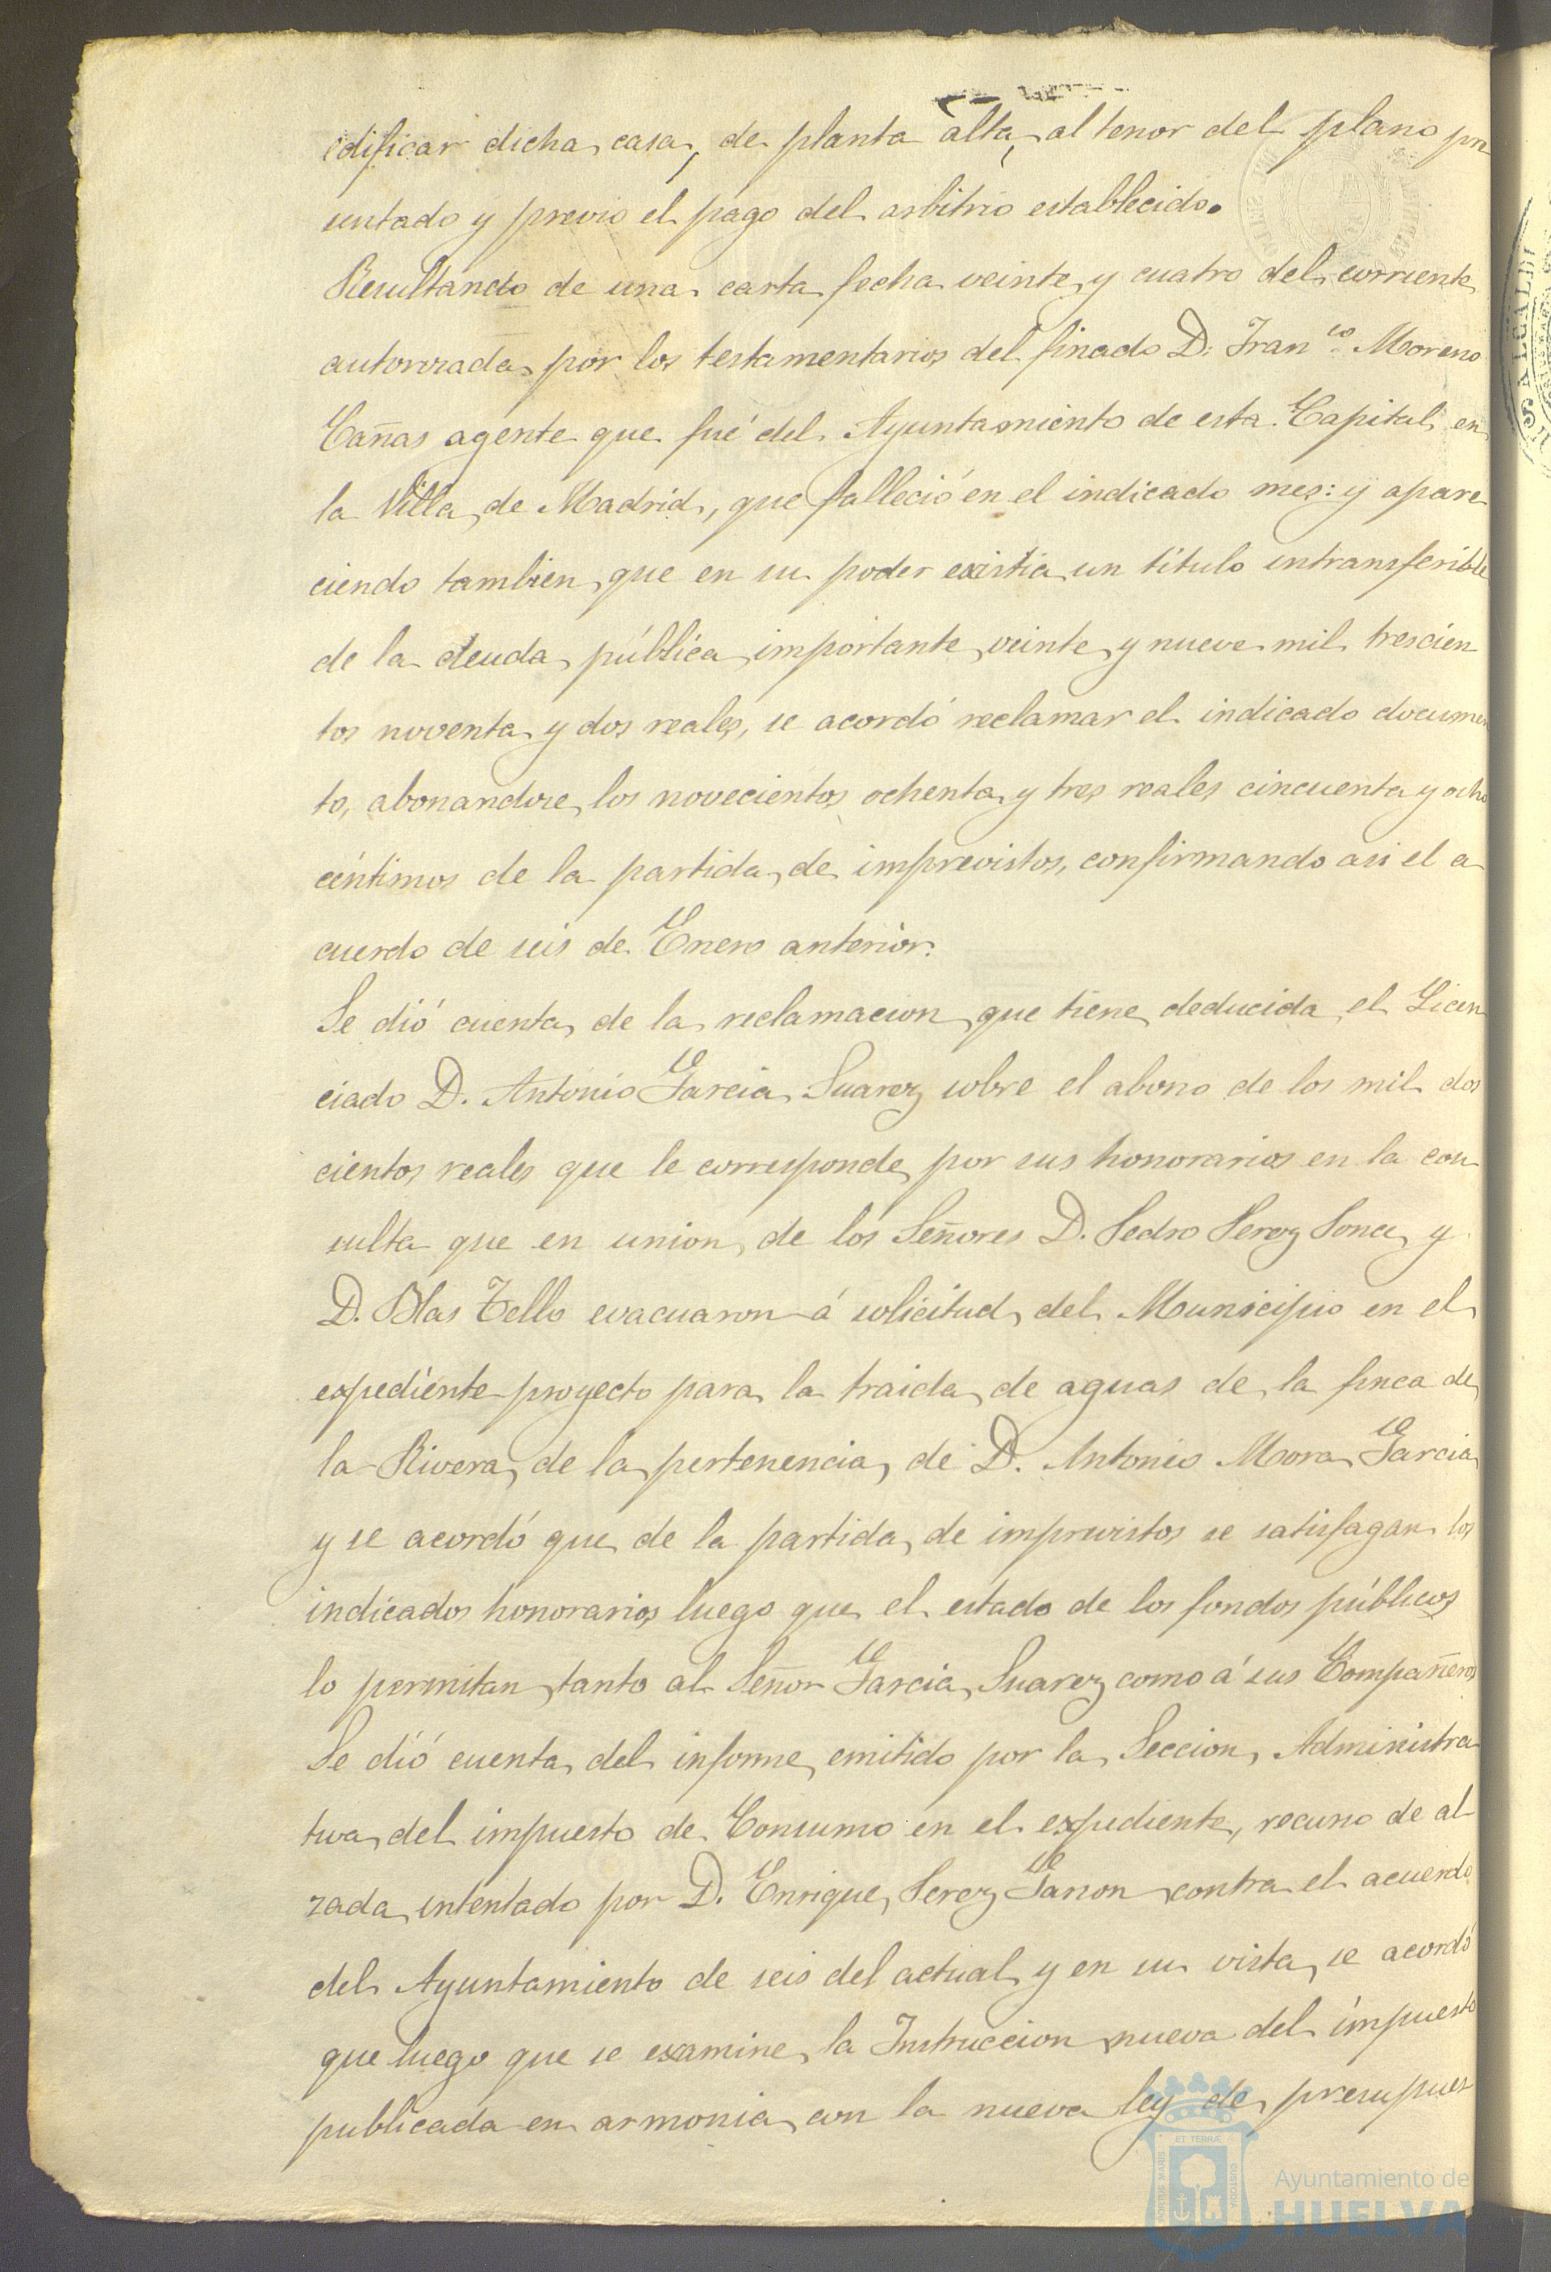 edificar dicha casa, de planta alta, al tenor del plano pre
sentado y previo el pago del arbitrio establecido.
Resultando de una carta fecha veinte y cuatro del corriente
autorizada por los testamentarios del finado D. Fran.co Moreno
Cañas agente que fué del Ayuntamiento de esta Capital en
la Villa de Madrid, que falleció en el indicado mes: y apare
ciendo tambien que en su poder existia un título intransferible
de la deuda pública importante veinte y nueve mil trescien
tos noventa y dos reales, se acordó reclamar el indicado documen
to, abonandose los novecientos ochenta y tres reales cincuenta y ocho
céntimos de la partida de imprevistos, confirmando asi el a
cuerdo de seis de Enero anterior.
Se dió cuenta de la reclamacion que tiene deducida el Licen
ciado D. Antonio Garcia Suarez sobre el abono de los mil dos
cientos reales que le corresponde por sus honorarios en la con
sulta que en union de los Señores D. Pedro Perez Ponce y
D. Blas Tello evacuaron á solicitud del Municipio en el
expediente proyecto para la traida de aguas de la finca de
la Rivera de la pertenencia de D. Antonio Mora Garcia
y se acordó que de la partida de imprevistos se satisfagan los
indicados honorarios luego que el estado de los fondos públicos
lo permitan tanto al Señor Garcia Suarez como á sus Compañeros
Se dió cuenta del informe emitido por la Seccion Administra
tiva del impuesto de Consumo en el expediente, recurso de al
zada intentado por D. Enrique Perez contra el acuerdo
del Ayuntamiento de seis del actual y en su vista se acordó
que luego que se examine la Instruccion nueva del impuesto
publicada en armonia con la nueva ley de presupues
Ayuntamiento de
HUELVA